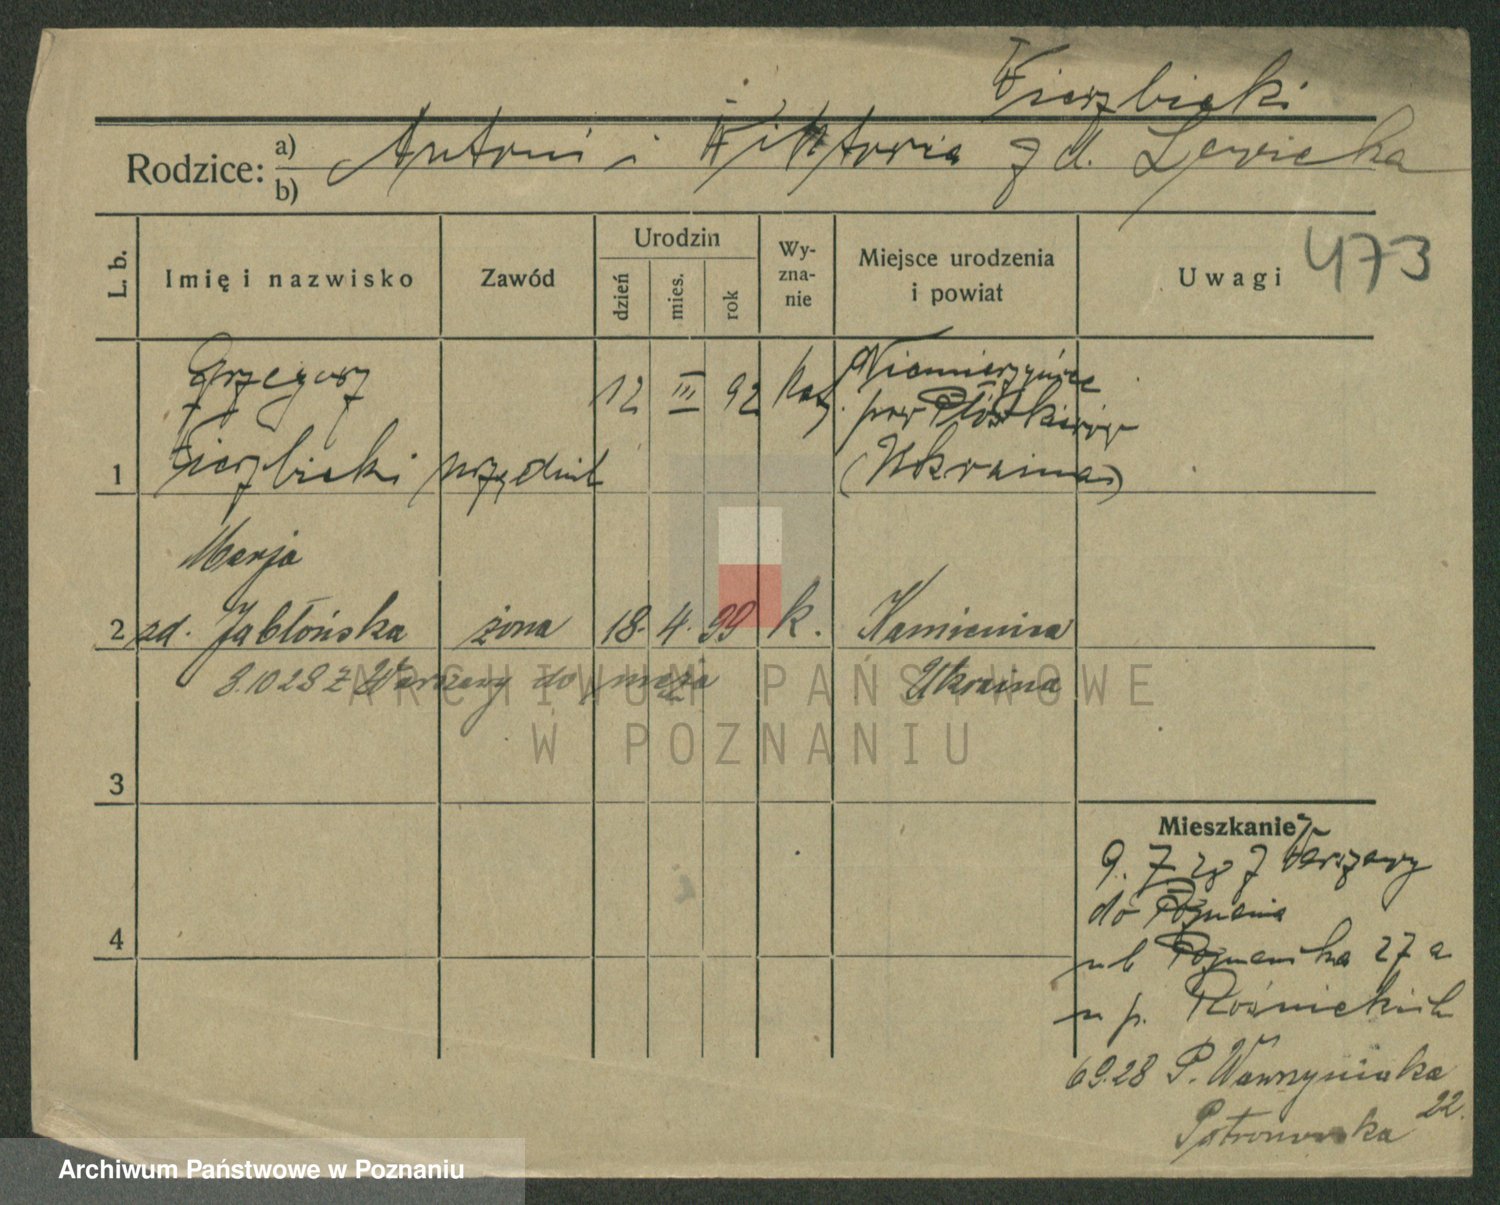 Wierzbicki
Rodzice: a) b) Antoni i Wiktoria z d. Lewicka
L. b. Imię i nazwisko Zawód Urodzin dzień mies. rok Wy-zna-nie Miejsce urodzenia i powiat Uwagi 473
Grzegorz 12 III 92 kat. Niemierzyńce
pow Płoskirów
1 Wierzbicki urzędnik (Ukraina)
Marja
2 zd. Jabłońska żona 18. 4. 99 k. Kamienica
8.10 28 z Warszawy do męża Ukraina
3
Mieszkanie
9. 7. 28 z Warszawy
do Poznania
4
ul Poznańska 27 a
u p. Rośnickich
6 9.28 P. Wawrzyniaka 22.
ARCHIWUM PAŃSTWOWE
W POZNANIU
Archiwum Państwowe w Poznaniu